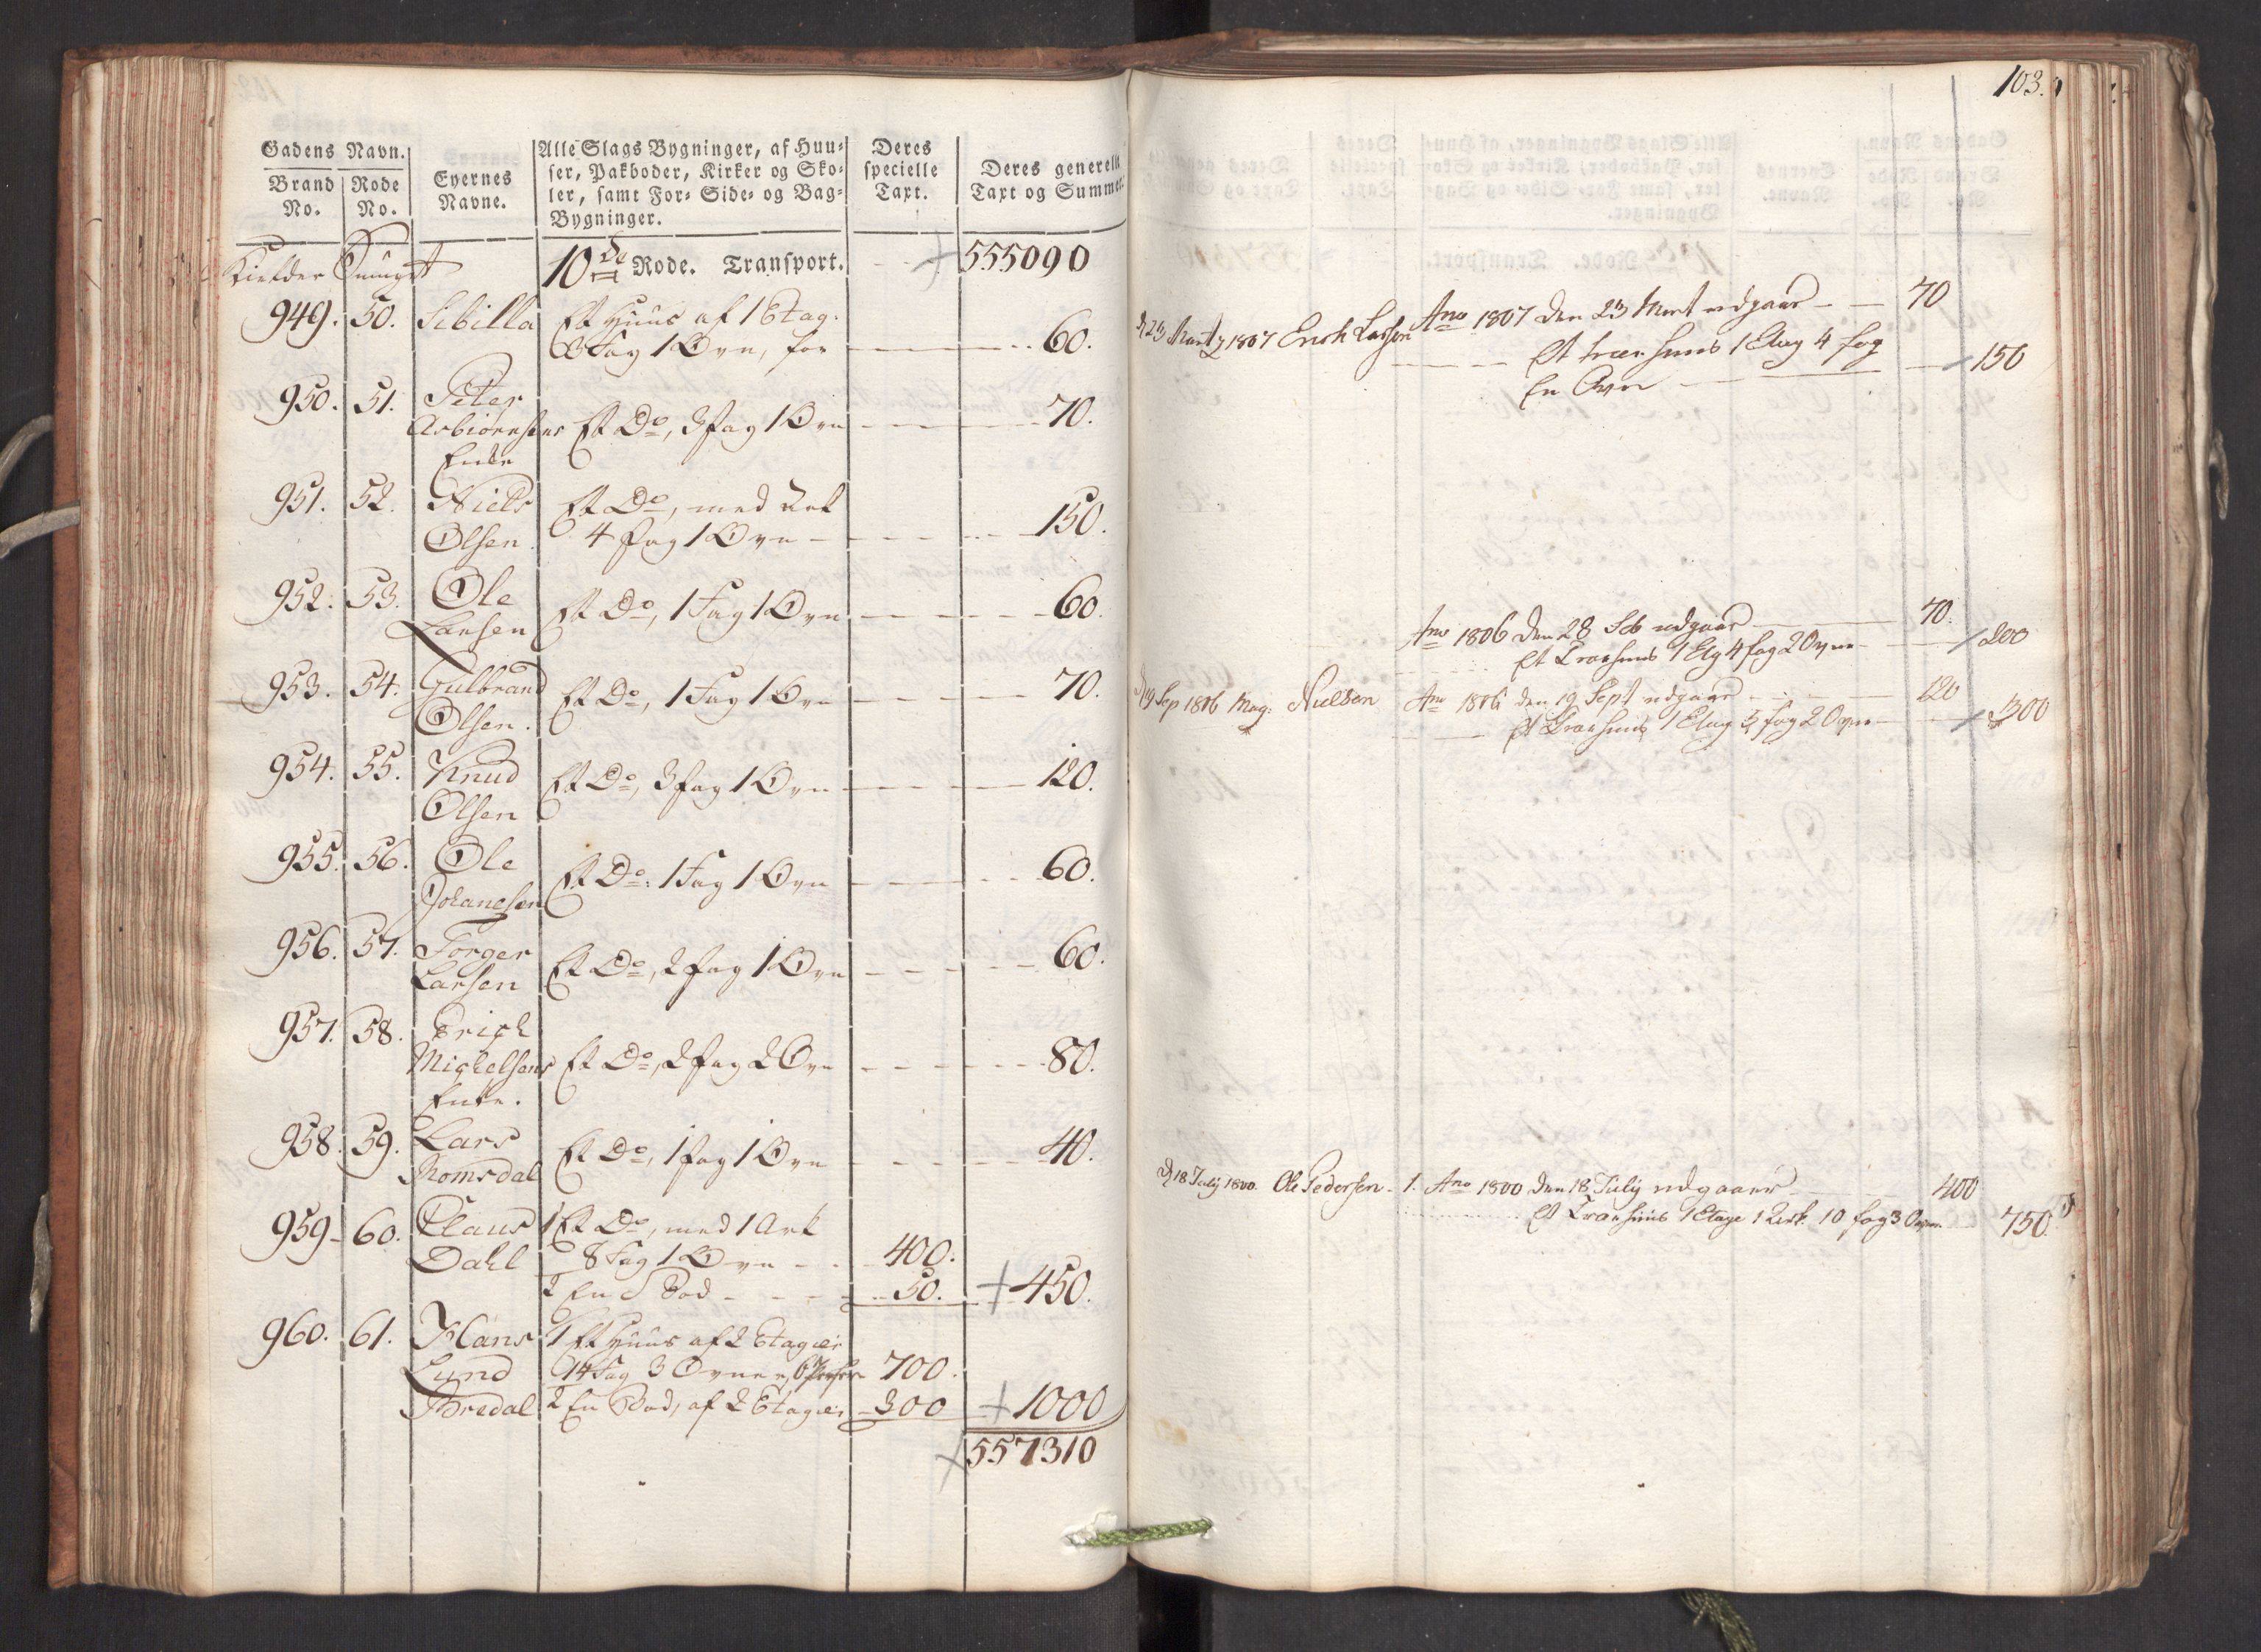 Gadens Navn.
Brand No.
Rode No.
Eyernes Navne.
Alle Slags Bygninger, af Huu-
ser, Pakboder, Kirker og Sko-
ler, samt For- Side- og Bag-
Bygninger.
Deres specielle Taxt.
Deres generelle Taxt og Summer.
10de Rode. Transport. 555090
949. 50. Sibilla Et Huus af 1 Etag.
3 Fag 1 Ovn, for 60.
950. 51. Peter
Asbiørnsens Et Do, 3 fag 1 Ovn 70.
Enke
951. 52. Niels Et Do, med Ark
Olsen. 4 fag 1 Ovn 150.
952. 53. Ole
Larsen Et Do, 1 Fag 1 Ovn 60.
953. 54. Gulbrand Et Do, 1 Fag 1 Ovn 70.
Olsen.
954. 55. Knud Et Do, 3 fag 1 Ovn 120.
Olsen
955. 56. Ole Et Do: 1 Fag 1 Ovn 60.
Johanesen
956. 57. Torger
Larsen Et Do, 2 fag 1 Ovn 60.
957. 58. Erich
Michelsens Et Do, 2 fag 2 Ovn 80.
Enke.
958. 59. Lars Et Do, 1 fag 1 Ovn 40.
Romsdal
959 60. Claus 1 Et Do, med 1 Ark
Dahl 8 Fag 1 Ovn 400.
2 En Bod 50. 450.
960. 61. Hans 1 Et Huus af 2 Etager
Lund 14 Fag 3 Ovne 700.
Bredal 2 En Bod, af 2 Etager 300 1000
557310
103.
d 23 Marty 1807 Erich Larsen Ano 1807 den 23 Mart udgaar 70
Et træe huus 1 Etag 4 fag
En Ovn 150
Ano 1806 den 28 udgaar 70.
Et Træehuus 1 Etg 4 fag 2 Ovne 200
d 19 Sep 1806 Mag: Nielsen Ano 1806 den 19 Sept udgaar 120
Et Træehuus 1 Etag 5 fag 2 Ovne 300
d 18 July 1800. Ole Pedersen 1. Ano 1800 den 18 July udgaaer 400
Et Træehuus 1 Etage 1 Ark. 10 fag 3 Ovne 750.